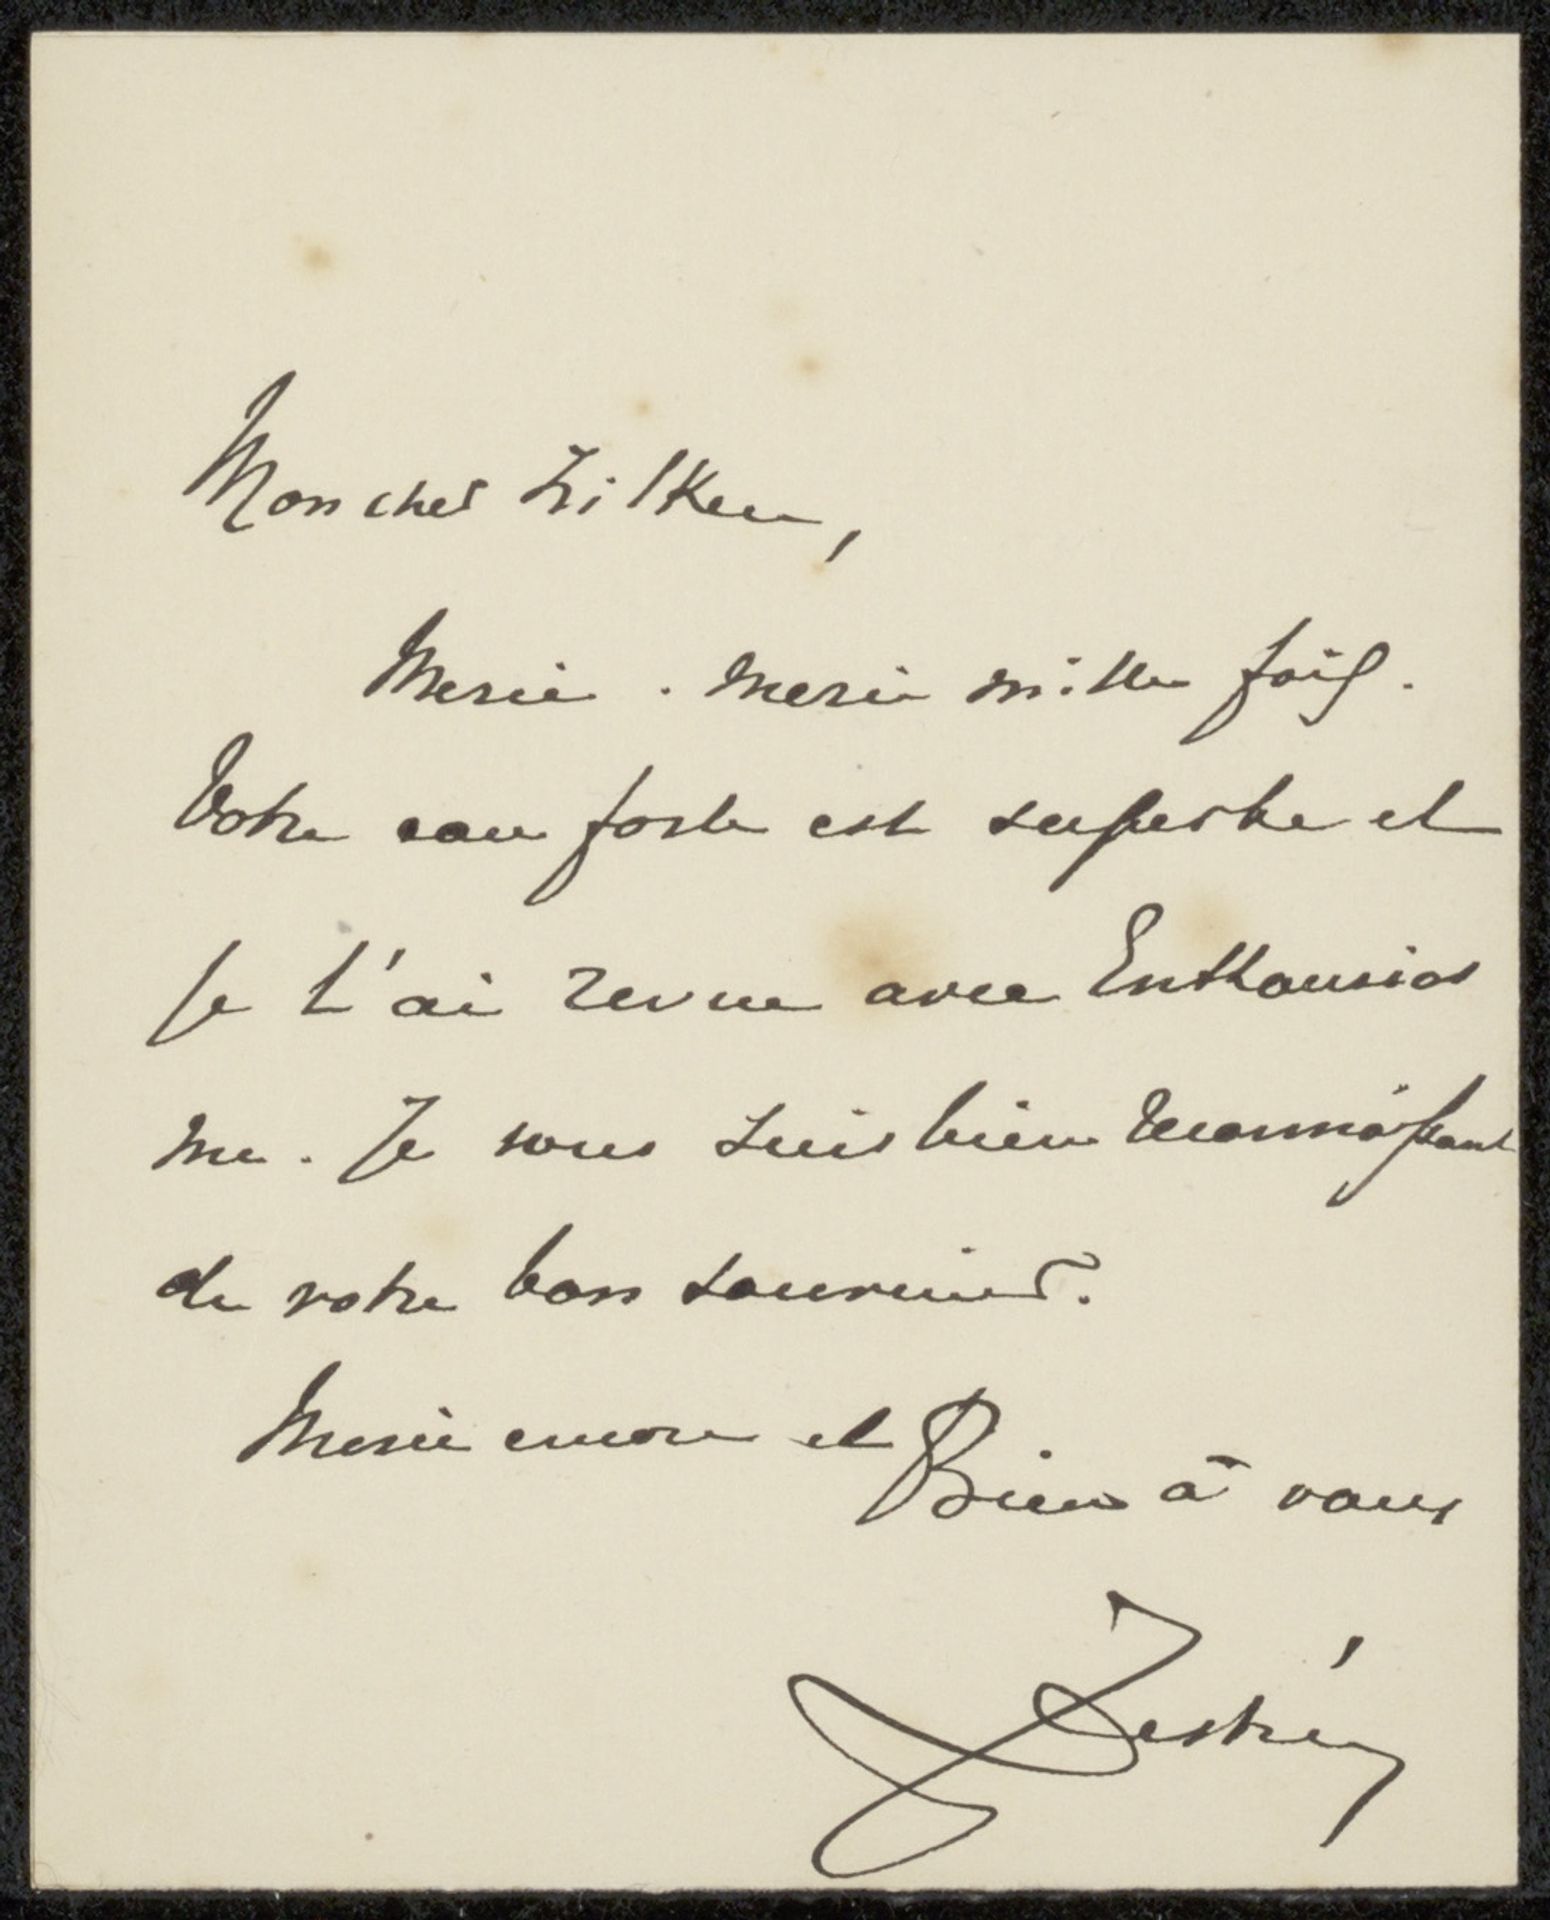 Mon cher Zilken,
Merci. Merci mille fois.
Votre eau forte est superbe et
je l'ai revue avec Enthousias
me. Je vous suis bien reconnaissant
de votre bon souvenir.
Merci encore et Bien à vous